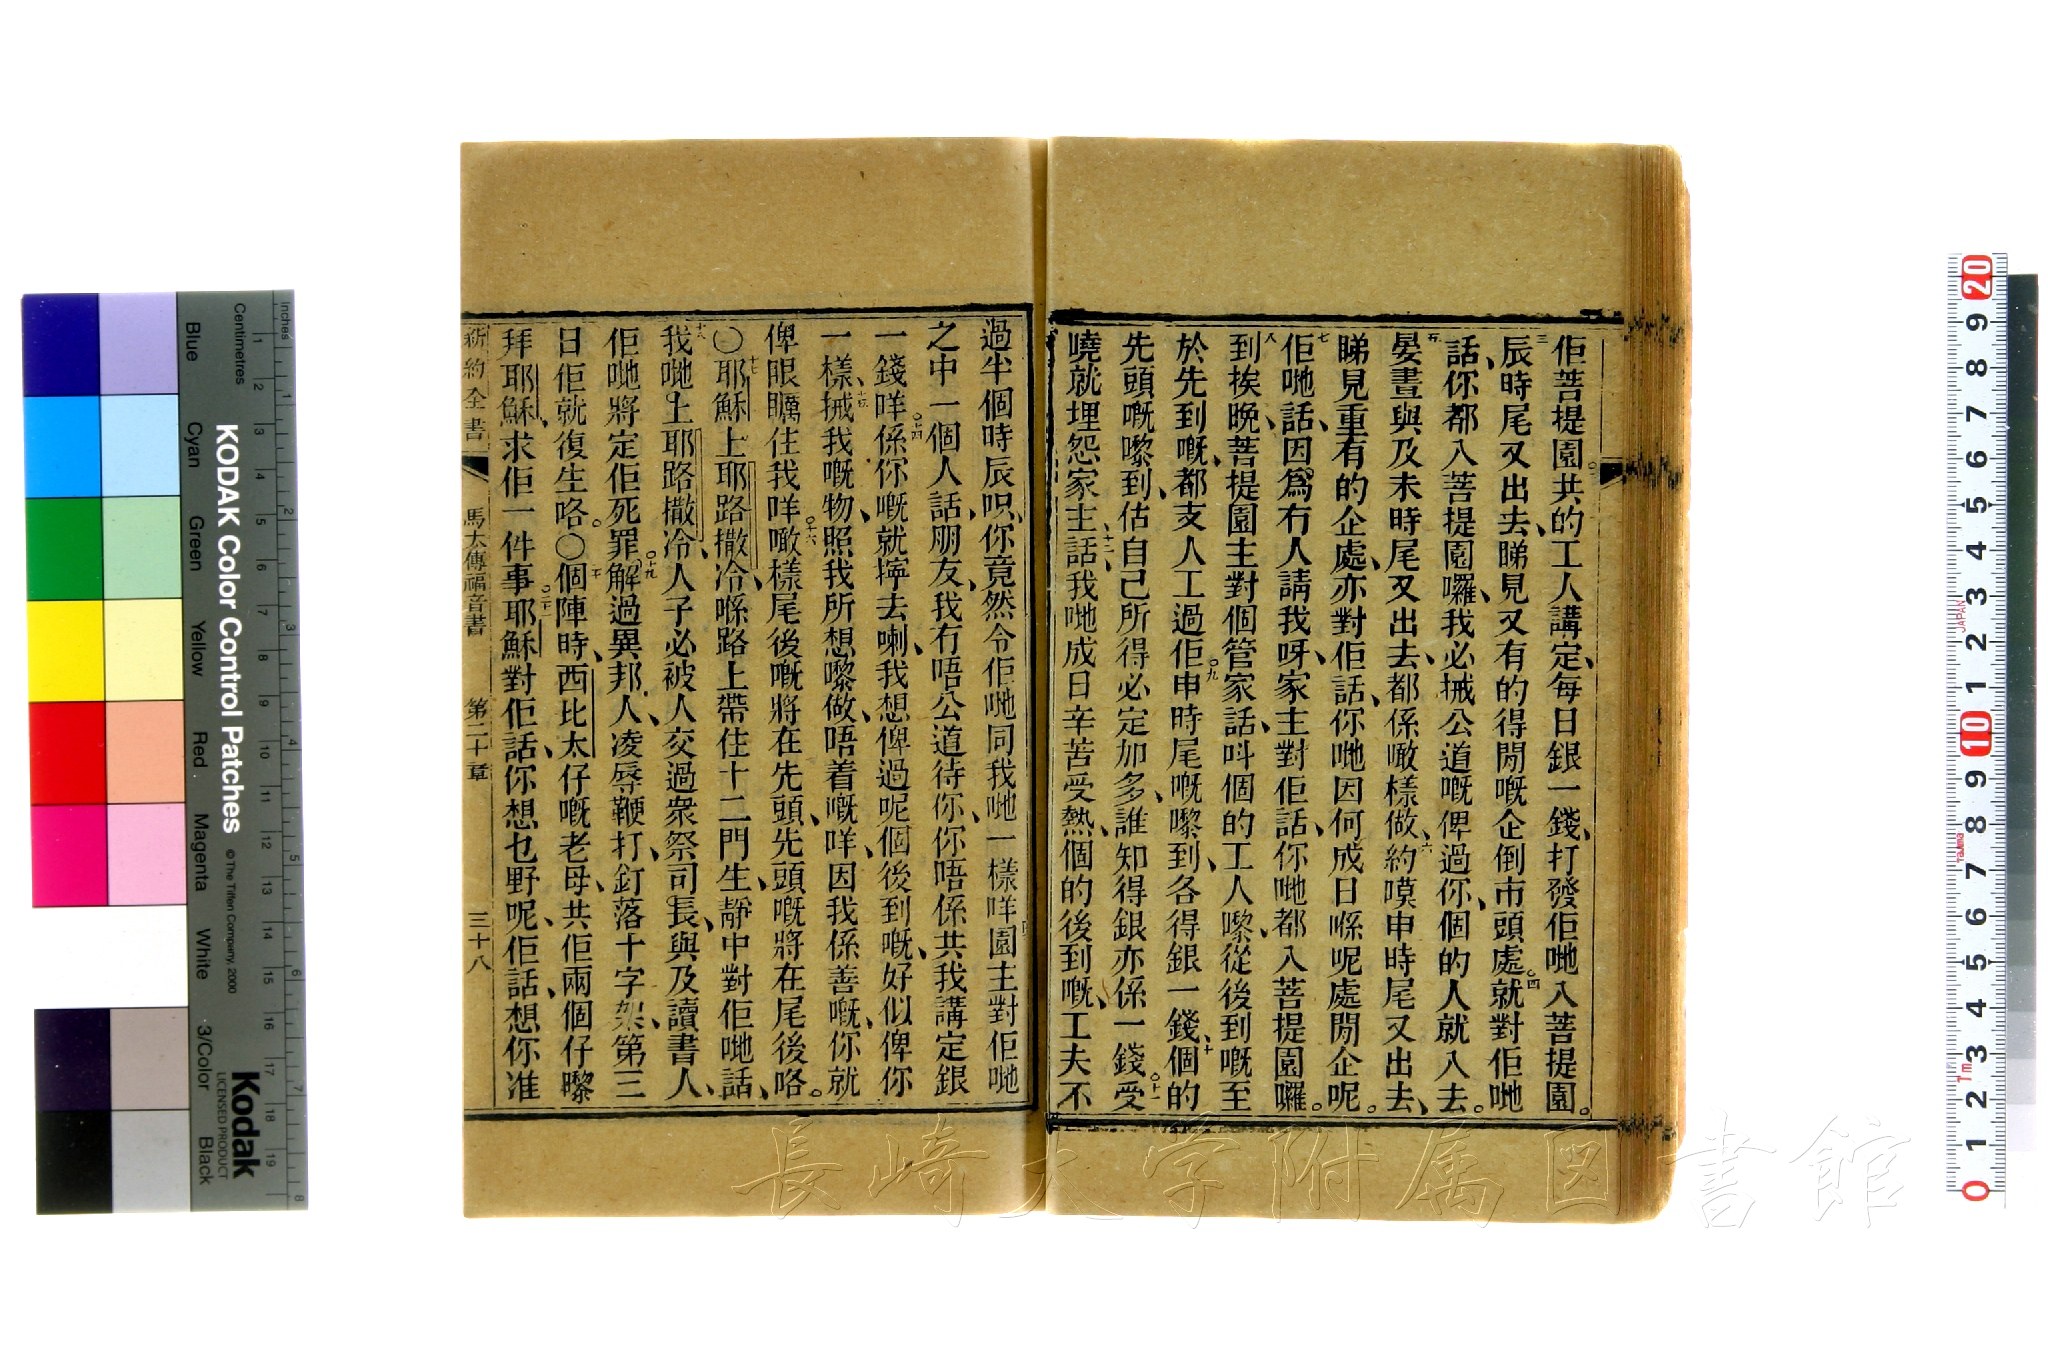 佢菩提園。共的工人講定、每日銀一錢、打發佢哋入菩提園。
三辰時尾又出去、睇見又有的得閒嘅企倒市頭處、○四就對佢哋
話、你都入菩提園囉、我必掝公道嘅俾過你、個的人就入去。
五晏晝與及未時尾又出去、都係噉樣做、六約嘆申時尾又出去、
睇見重有的企處、亦對佢話、你哋因何成日喺呢處閒企呢。
七佢哋話、因爲冇人請我呀、家主對佢話、你哋都入菩提園囉。
八到挨晚、菩提園主對個管家話、呌個的工人嚟、從後到嘅至
於先到嘅、都支人工過佢、○九申時尾嘅嚟到、各得銀一錢、十個的
先頭嘅嚟到、估自己所得必定加多、誰知得銀亦係一錢、○十一受
曉就埋怨家主、十二話、我哋成日辛苦受熱、個的後到嘅、工夫不
過半個時辰呮、你竟然令佢哋同我哋一樣咩、園主對佢哋
之中一個人話、朋友、我冇唔公道待你、你唔係共我講定銀
一錢咩、○十四係你嘅就擰去喇、我想俾過呢個後到嘅、好似俾你
一樣、十五掝我嘅物、照我所想嚟做、唔着嘅咩、因我係善嘅、你就
俾眼矋住我咩、○十六噉樣尾後嘅將在先頭、先頭嘅將在尾後咯。
○十七耶穌上耶路撒冷、喺路上帶住十二門生、靜中對佢哋話、
十八我哋上耶路撒冷、人子必被人交過衆祭司長、與及讀書人、
佢哋將定佢死罪、○十九解過異邦人、凌辱鞭打、釘落十字架、第三
日佢就復生咯。○二十個陣時、西比太仔嘅老母、共佢兩個仔嚟
拜耶穌、求佢一件事、○二十一耶穌對佢話、你想乜野呢、佢話、想你准
新約全書 馬太傳福音書 第二十章 三十八
KODAK Color Control Patches
© The Tiffen Company, 2000
Kodak
LICENSED PRODUCT
Inches
Centimetres
Blue
Cyan
Green
Yellow
Red
Magenta
White
3/Color
Black
JAPAN
Tajima
長崎大学附属図書館